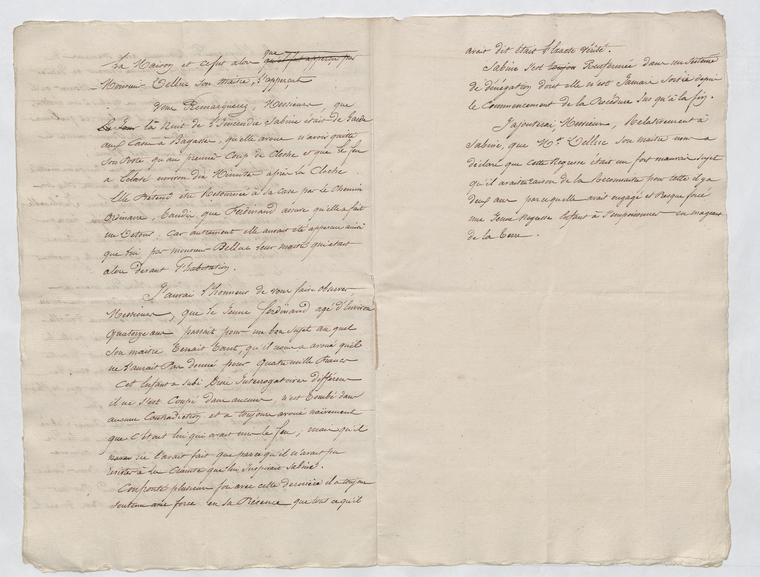 la Maison et ce fut alors que qu'il fut apperçu par
Monsieur Dellise Son maitre, l'apperçut
Vous Remarquerez, Messieurs, que
Le Jour la Nuit de l'Incendie Sabine était de Garde
aux Cases a Bagasse, qu'elle avoue n'avoir quitté
Son Poste qu'au premier Coup de Cloche et que le feu
a Eclaté environ dix Minutes après la Cloche.
Elle Prétend être Retournée à sa case par le Chemin
Ordinaire, tandis que Ferdinand assure qu'elle a fait
un Detour. Car autrement elle aurait été apperçue ainsi
que lui par monsieur Dellise leur maitre qui était
alors devant l'habitation.
J'aurai l'honneur de vous faire observer,
Messieurs, que le Jeune Ferdinand agé d'Environ
quatorze ans passait pour un bon Sujet au quel
Son maitre Tenait tant, qu'il nous a avoué qu'il
ne l'aurait Pas donné pour quatre mille Francs
Cet Enfant a Subi Interrogatoires différens
il ne s'est Coupé dans aucuns, n'est tombé dans
aucune Contradiction et a toujours avoué naïvement
que C'était lui qui avait mis le feu, mais qu'il
ne l'avait fait que parce qu'il n'avait pu
resister à la Crainte que lui Inspirait Sabine.
Confronté plusieurs fois avec cette dernière il a toujours
soutenu avec force en sa Présence que tout ce qu'il
avait dit était l'Exacte vérité.
Sabine s'est toujours Renfermée dans un Sisteme
de dénégation dont elle n'est Jamais Sortie depuis
le Commencement de la Procédure Jusqu'à la fin.
J'ajouterai, Messieurs, Relativement à
Sabine, que Mr. Dellise Son maitre nous a
déclaré que cette Negresse était un fort mauvais Sujet
qu'il avait raison de la Reconnaitre pour telle il y a
deux ans parce qu'elle avait engagé et Presque forcé
une Jeune Negresse Enfant à S'empoisonner en mangeant
de la Terre.